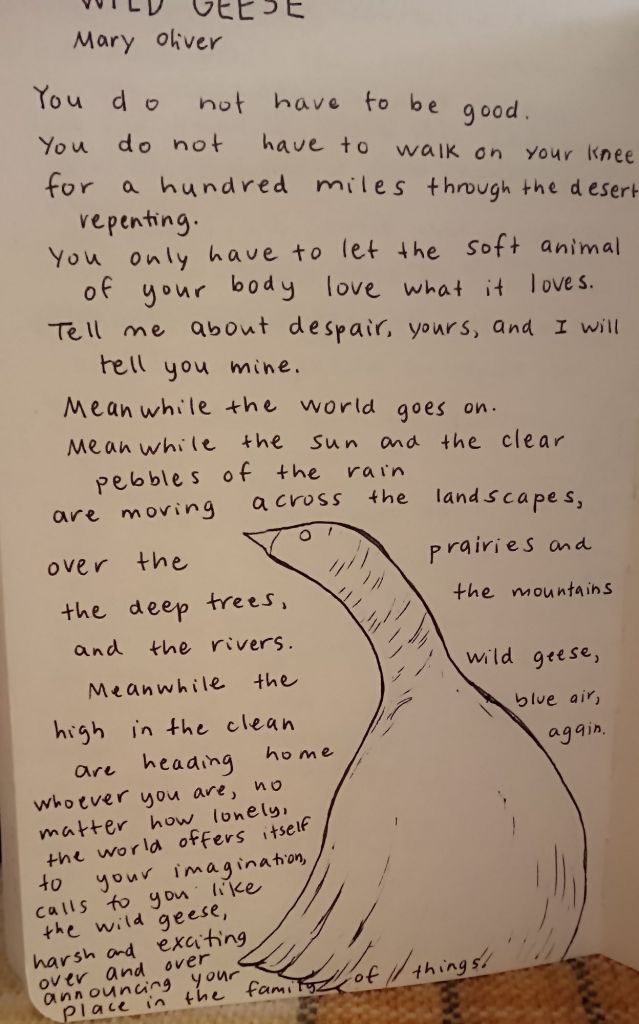 WILD GEESE
Mary Oliver
You do not have to be good.
You do not have to walk on your knee
for a hundred miles through the desert
repenting.
You only have to let the soft animal
of your body love what it loves.
Tell me about despair, yours, and I will
tell you mine.
Meanwhile the world goes on.
Meanwhile the sun and the clear
pebbles of the rain
are moving across the landscapes,
over the prairies and
the deep trees, the mountains
and the rivers.
Meanwhile the wild geese,
high in the clean blue air,
are heading home again.
whoever you are, no
matter how lonely,
the world offers itself
to your imagination,
calls to you like
the wild geese,
harsh and exciting
over and over
announcing your
place in the family of things.